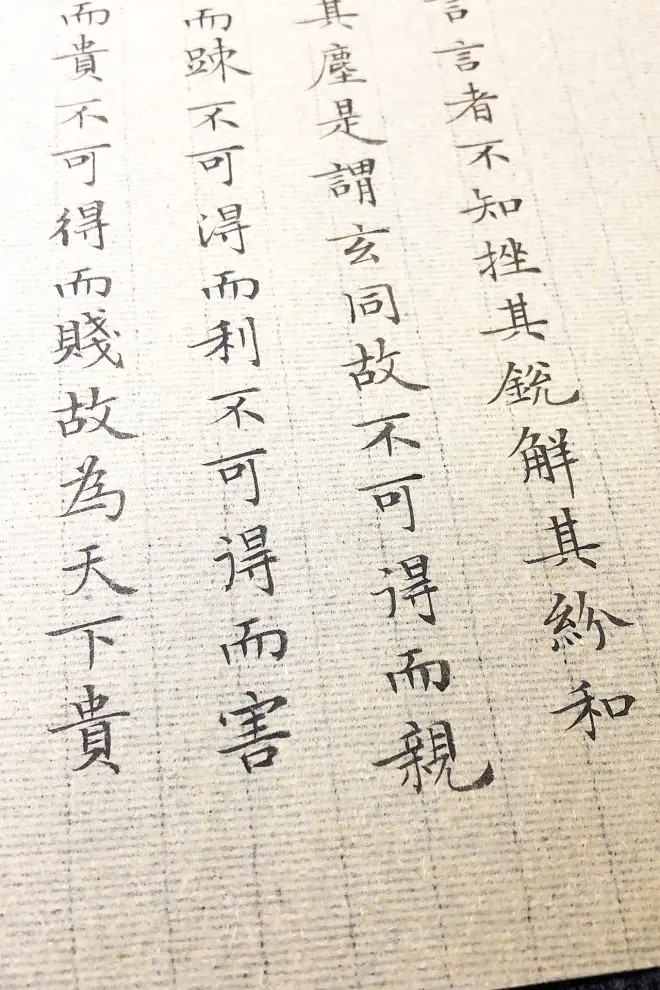 言言者不知挫其銳解其紛和
其塵是謂玄同故不可得而親
而踈不可得而利不可得而害
而貴不可得而賤故為天下貴